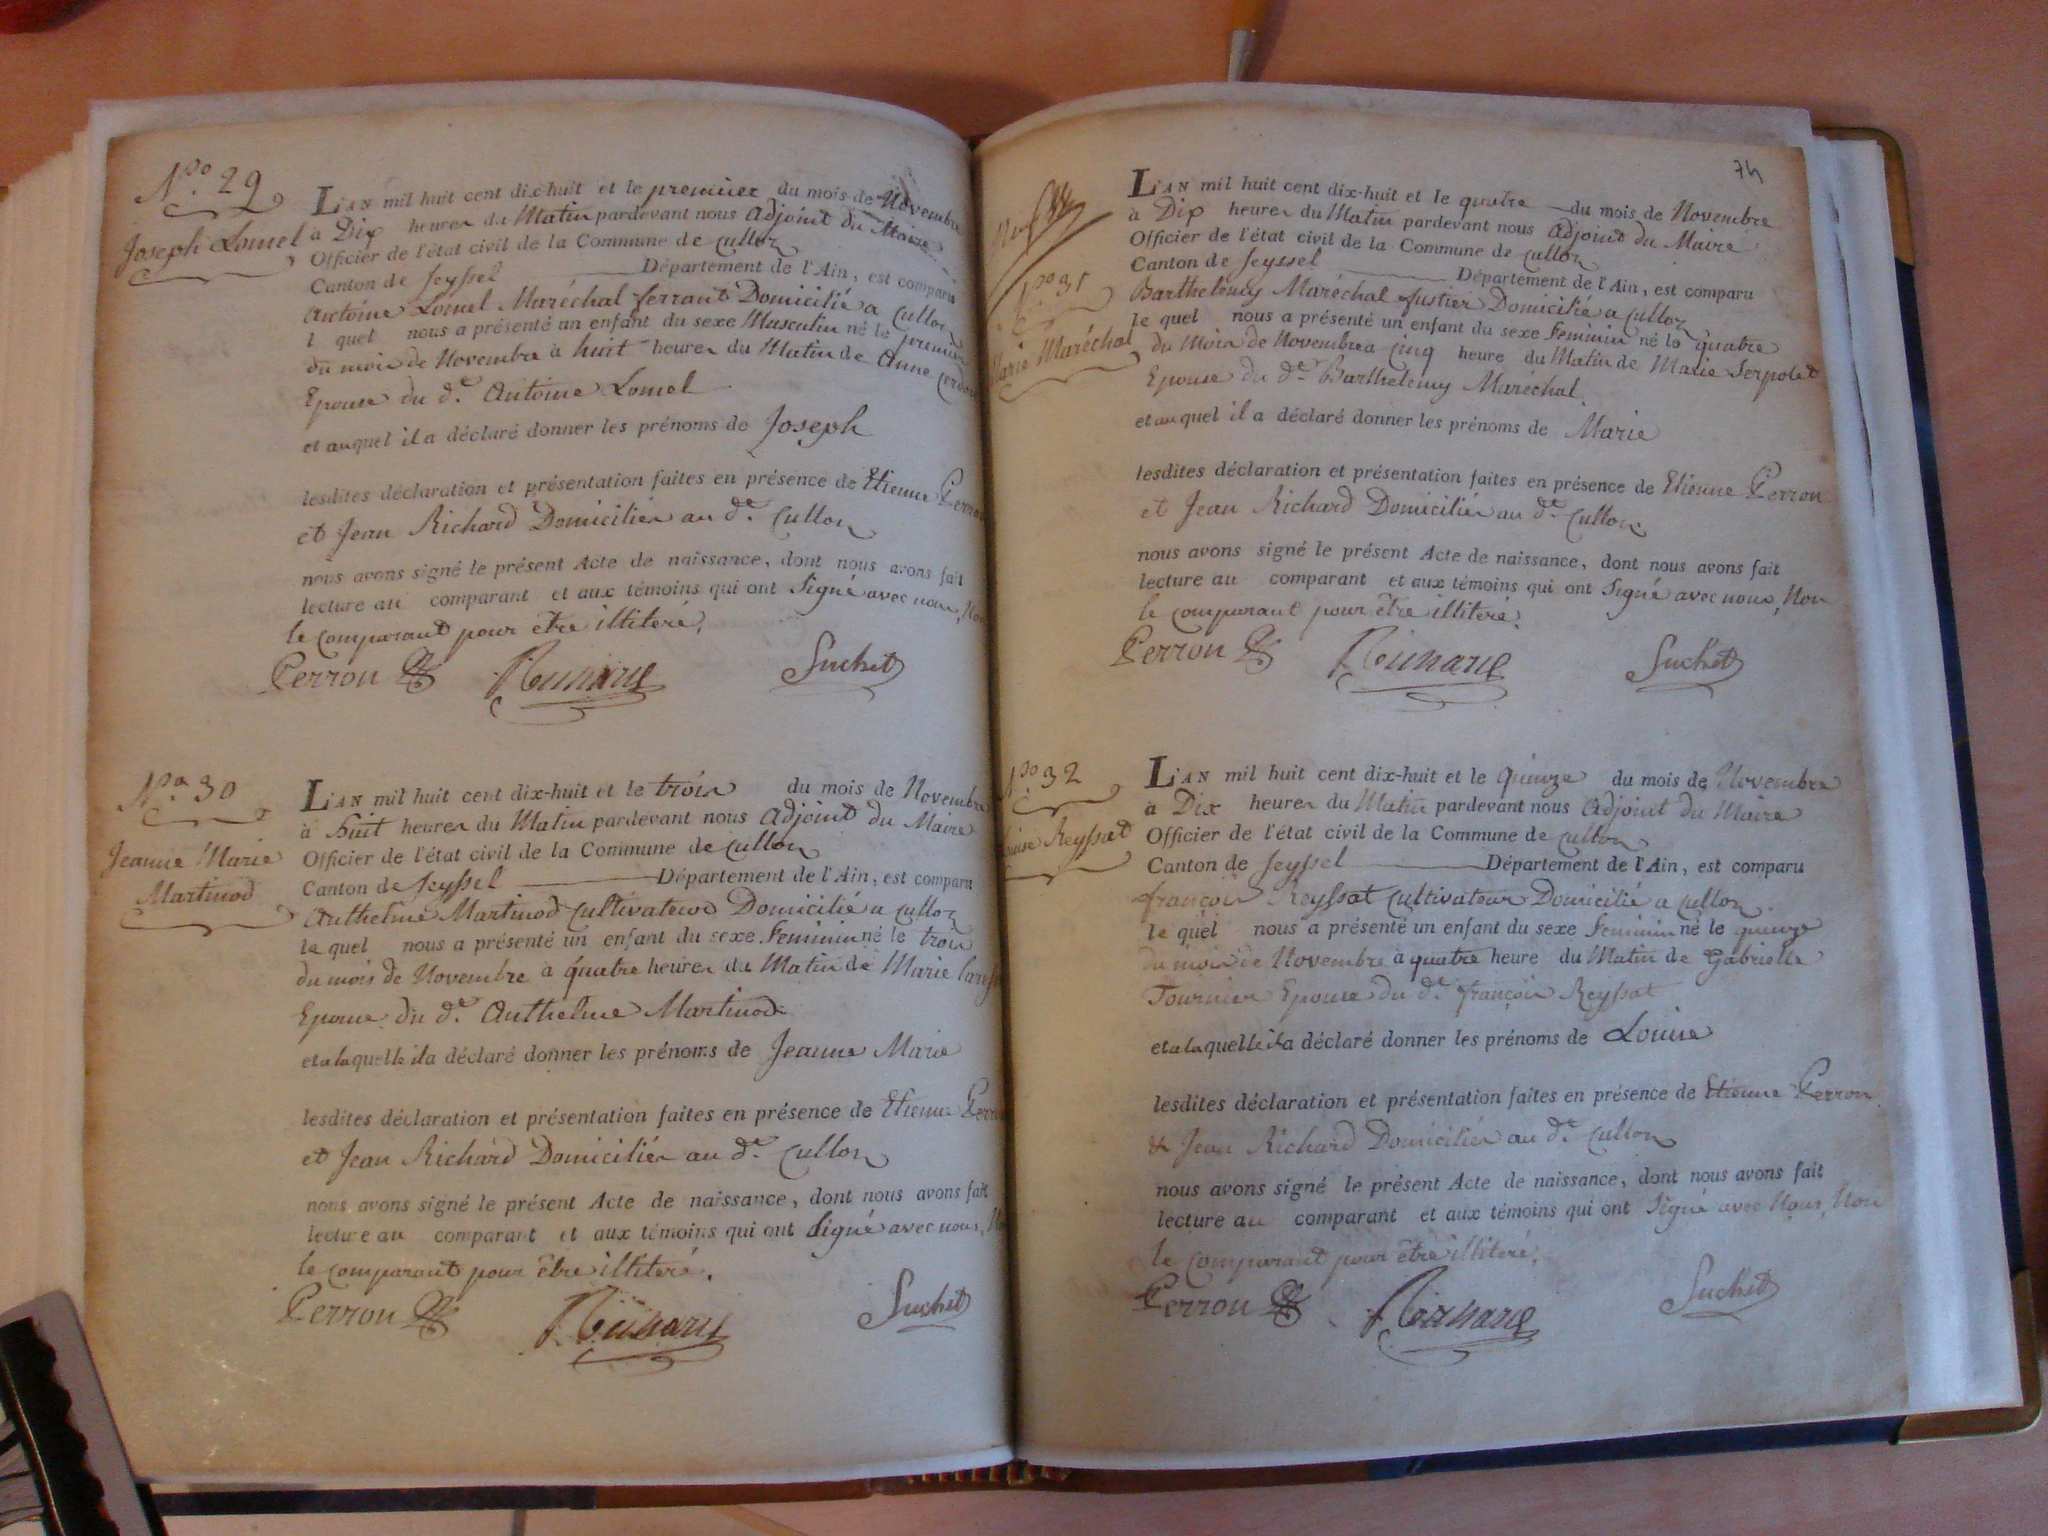 Nº. 29
Joseph Lomel
L'AN mil huit cent dix-huit et le premier du mois de Novembre
à Dix heures du Matin pardevant nous Adjoint du Maire
Officier de l'état civil de la Commune de Culloz
Canton de Seyssel Département de l'Ain, est comparu
Antoine Lomel Maréchal ferrant Domicilié a Culloz
l quel nous a présenté un enfant du sexe Masculin né le premier
du mois de Novembre à huit heures du Matin de Anne
Epouse du d.e Antoine Lomel
et auquel il a déclaré donner les prénoms de Joseph
lesdites déclaration et présentation faites en présence de Etienne Perron
et Jean Richard Domiciliés au d.e Culloz
nous avons signé le présent Acte de naissance, dont nous avons fait
lecture au comparant et aux témoins qui ont Signé avec nous, Non
le comparant pour être illiteré.
Perron Richard Suchet
Nº. 30
Jeanne Marie
Martinod
L'AN mil huit cent dix-huit et le trois du mois de Novembre
à Huit heures du Matin pardevant nous Adjoint du Maire
Officier de l'état civil de la Commune de Culloz
Canton de Seyssel Département de l'Ain, est comparu
Anthelme Martinod Cultivateur Domicilié a Culloz
le quel nous a présenté un enfant du sexe Feminin né le trois
du mois de Novembre à quatre heures du Matin de Marie
Epouse du d.e Anthelme Martinod
et a laquelle il a déclaré donner les prénoms de Jeanne Marie
lesdites déclaration et présentation faites en présence de Etienne Perron
et Jean Richard Domiciliés au d.e Culloz
nous avons signé le présent Acte de naissance, dont nous avons fait
lecture au comparant et aux témoins qui ont Signé avec nous, Non
le comparant pour être illiteré.
Perron Richard Suchet
74
Nº. 31
Marie Maréchal
L'AN mil huit cent dix-huit et le quatre du mois de Novembre
à Dix heures du Matin pardevant nous Adjoint du Maire
Officier de l'état civil de la Commune de Culloz
Canton de Seyssel Département de l'Ain, est comparu
Barthelemy Maréchal fustier Domicilié a Culloz
le quel nous a présenté un enfant du sexe Feminin né le quatre
du Mois de Novembre a cinq heure du Matin de Marie Serpolet
Epouse du d.e Barthelemy Maréchal.
et auquel il a déclaré donner les prénoms de Marie
lesdites déclaration et présentation faites en présence de Etienne Perron
et Jean Richard Domiciliés au d.e Culloz.
nous avons signé le présent Acte de naissance, dont nous avons fait
lecture au comparant et aux témoins qui ont Signé avec nous, Non
le comparant pour être illiteré.
Perron Richard Suchet
Nº. 32
Louise Reyssat
L'AN mil huit cent dix-huit et le Quinze du mois de Novembre
à Dix heures du Matin pardevant nous Adjoint du Maire
Officier de l'état civil de la Commune de Culloz
Canton de Seyssel Département de l'Ain, est comparu
françois Reyssat Cultivateur Domicilié a Culloz
le quel nous a présenté un enfant du sexe Feminin né le quinze
du mois de Novembre à quatre heure du Matin de Gabrielle
Tournier Epouse du d.e françois Reyssat
et a laquelle il a déclaré donner les prénoms de Louise
lesdites déclaration et présentation faites en présence de Etienne Perron
& Jean Richard Domiciliés au d.e Culloz
nous avons signé le présent Acte de naissance, dont nous avons fait
lecture au comparant et aux témoins qui ont Signé avec Nous, Non
le comparant pour être illiteré.
Perron Richard Suchet